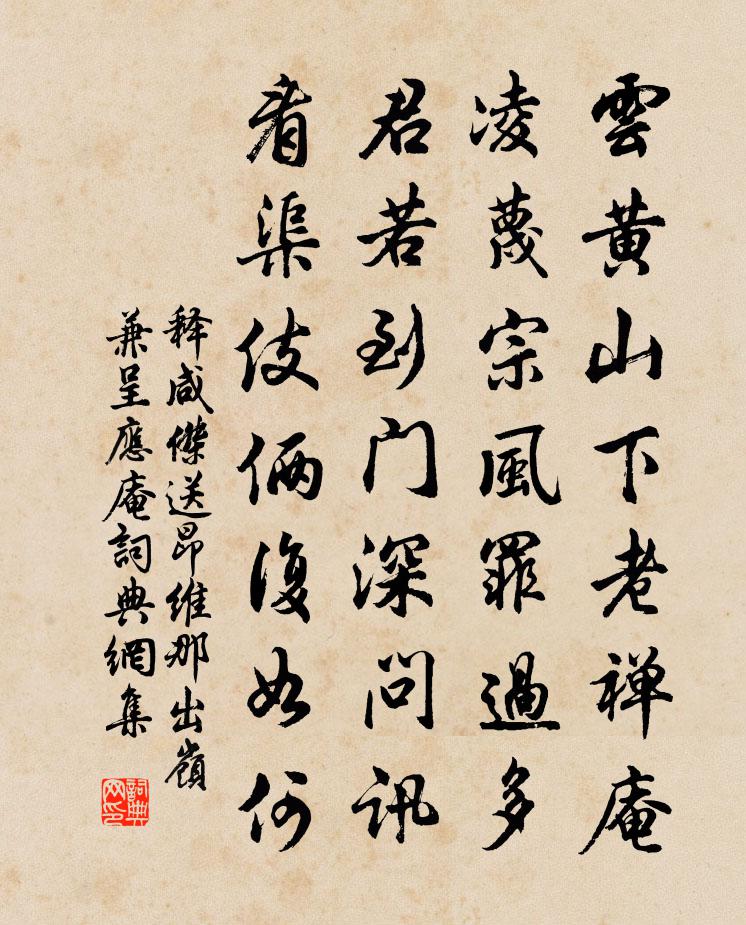 雲黄山下老禅庵
凌蔑宗風罪過多
君若到门深问讯
看渠伎俩復如何
释咸傑送昂維那出嶺
兼呈應庵詞典網集
詞典网印